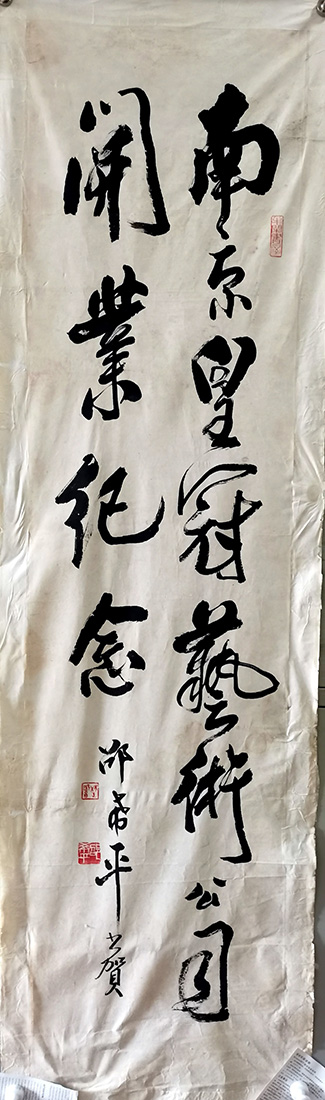 南京皇冠藝術公司
開業紀念
邵希平書賀